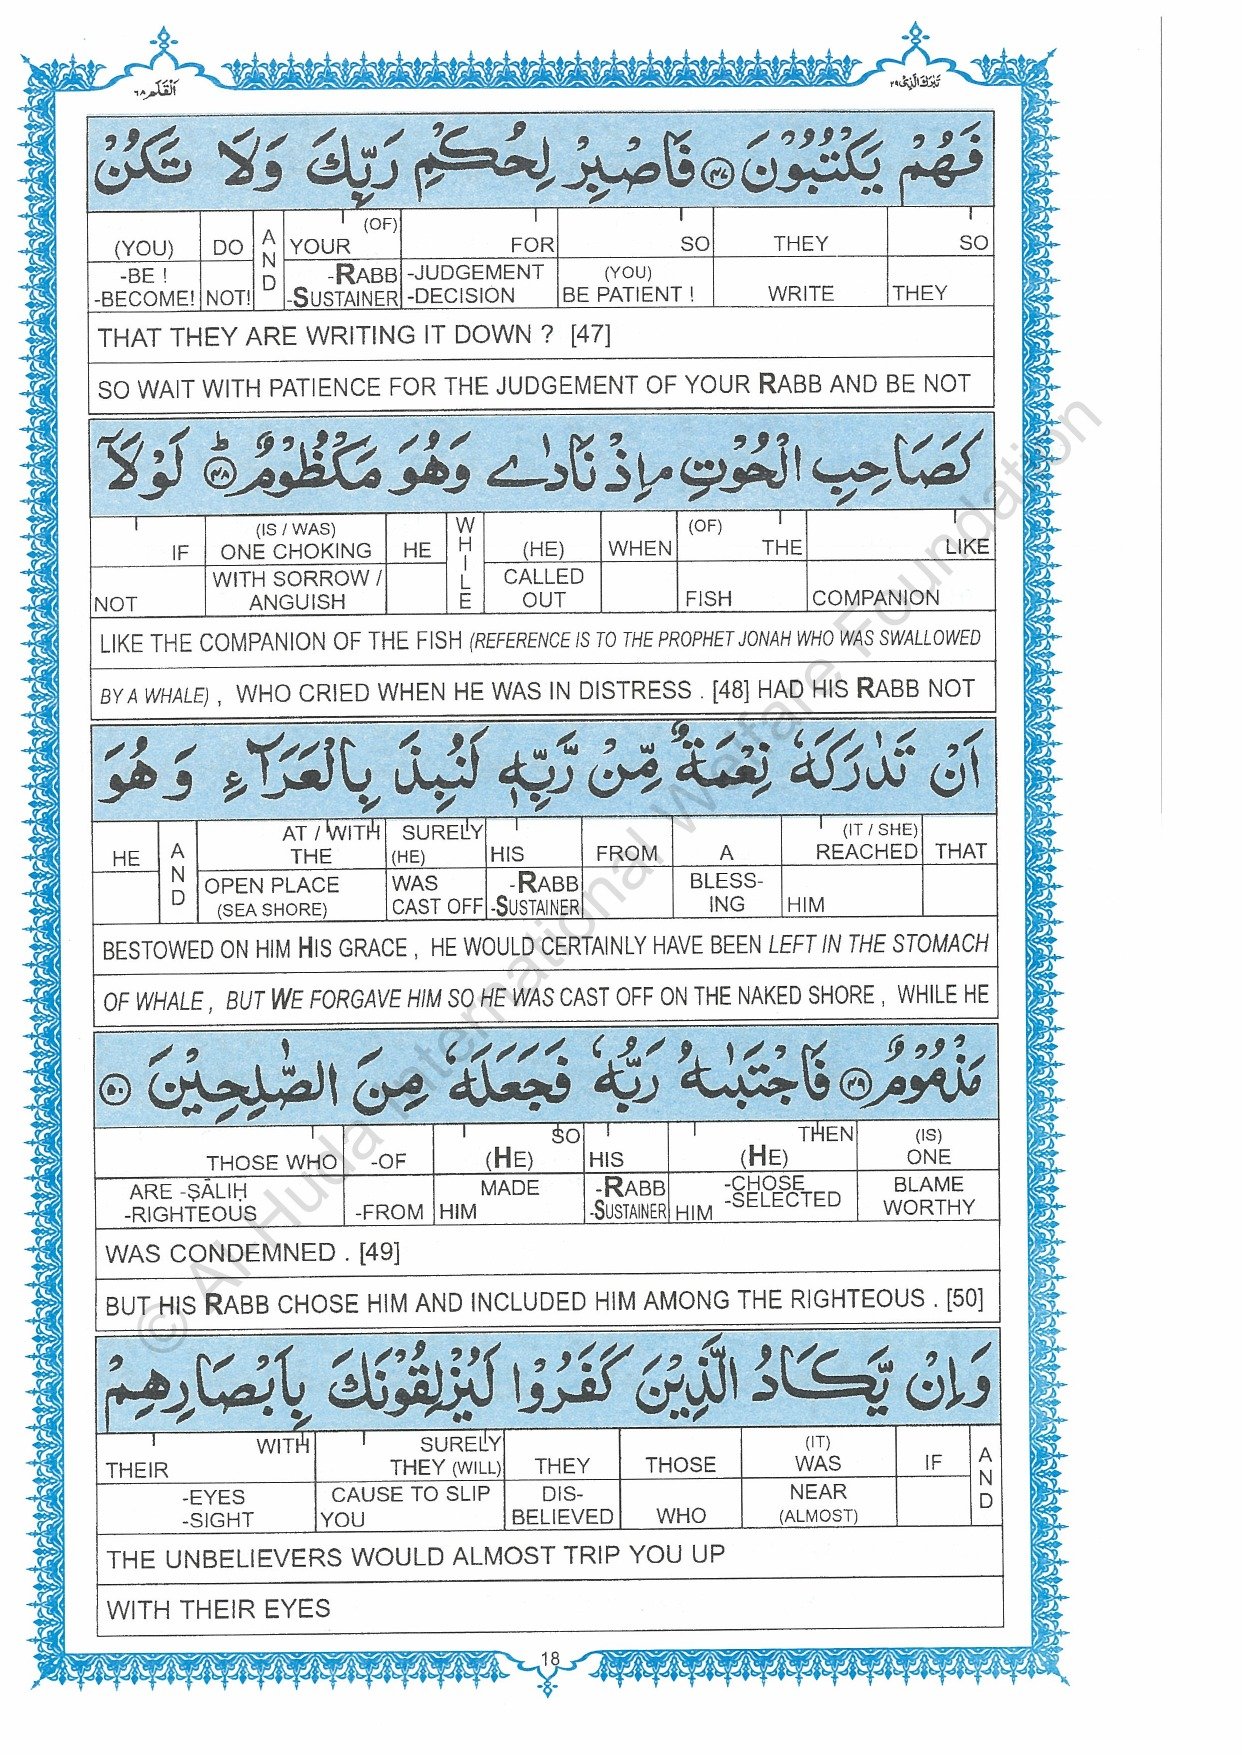 اَلْقَلَم ٦٨
تَبٰرَكَ الَّذِىْ ٢٩
فَهُمْ يَكْتُبُوْنَ ﴿٤٧﴾ فَاصْبِرْ لِحُكْمِ رَبِّكَ وَلَا تَكُنْ
(YOU) DO AND YOUR (OF) FOR SO THEY SO
-BE ! -RABB -JUDGEMENT (YOU)
-BECOME! NOT! -SUSTAINER -DECISION BE PATIENT ! WRITE THEY
THAT THEY ARE WRITING IT DOWN ? [47]
SO WAIT WITH PATIENCE FOR THE JUDGEMENT OF YOUR RABB AND BE NOT
كَصَاحِبِ الْحُوْتِ مإِذْ نَادٰے وَهُوَ مَكْظُوْمٌ ﴿٤٨﴾ؕ لَوْلَآ
(IS / WAS) WHILE (OF)
IF ONE CHOKING HE (HE) WHEN THE LIKE
WITH SORROW / CALLED
NOT ANGUISH OUT FISH COMPANION
LIKE THE COMPANION OF THE FISH (REFERENCE IS TO THE PROPHET JONAH WHO WAS SWALLOWED
BY A WHALE) , WHO CRIED WHEN HE WAS IN DISTRESS . [48] HAD HIS RABB NOT
اَنْ تَدٰرَكَهٗ نِعْمَةٌ مِّنْ رَّبِّهٖ لَنُبِذَ بِالْعَرَآءِ وَهُوَ
AT / WITH SURELY (IT / SHE)
HE AND THE (HE) HIS FROM A REACHED THAT
OPEN PLACE WAS -RABB BLESS-
(SEA SHORE) CAST OFF -SUSTAINER ING HIM
BESTOWED ON HIM HIS GRACE , HE WOULD CERTAINLY HAVE BEEN LEFT IN THE STOMACH
OF WHALE , BUT WE FORGAVE HIM SO HE WAS CAST OFF ON THE NAKED SHORE , WHILE HE
مَذْمُوْمٌ ﴿٤٩﴾ فَاجْتَبٰىهُ رَبُّهٗ فَجَعَلَهٗ مِنَ الصّٰلِحِيْنَ ﴿٥٠﴾
SO THEN (IS)
THOSE WHO -OF (HE) HIS (HE) ONE
ARE -ṢĀLIḤ MADE -RABB -CHOSE BLAME
-RIGHTEOUS -FROM HIM -SUSTAINER HIM -SELECTED WORTHY
WAS CONDEMNED . [49]
BUT HIS RABB CHOSE HIM AND INCLUDED HIM AMONG THE RIGHTEOUS . [50]
وَاِنْ يَّكَادُ الَّذِيْنَ كَفَرُوْا لَيُزْلِقُوْنَكَ بِاَبْصَارِهِمْ
WITH SURELY (IT)
THEIR THEY (WILL) THEY THOSE WAS IF AND
-EYES CAUSE TO SLIP DIS- NEAR
-SIGHT YOU BELIEVED WHO (ALMOST)
THE UNBELIEVERS WOULD ALMOST TRIP YOU UP
WITH THEIR EYES
18
© Al Huda International Welfare Foundation